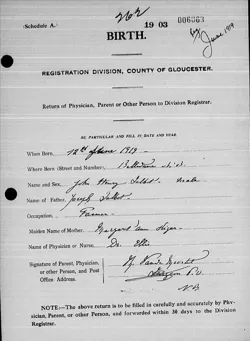 262
(Schedule A.
19 03
006663
BIRTH.
June 1919
REGISTRATION DIVISION, COUNTY OF GLOUCESTER.
Return of Physician, Parent or Other Person to Division Registrar.
BE PARTICULAR AND FILL IN DATE AND YEAR.
When Born, 12th June 1919
Where Born (Street and Number),
Name and Sex, John Henry Talbot. male
Name of Father, Joseph Talbot
Occupation, Farmer
Maiden Name of Mother, Margaret Ann
Name of Physician or Nurse, Dr. Ellis
Signature of Parent, Physician,
or other Person, and Post
Office Address.
P.O.
N.B
NOTE:—The above return is to be filled in carefully and accurately by Physician, Parent, or other Person, and forwarded within 30 days to the Division
Registrar.